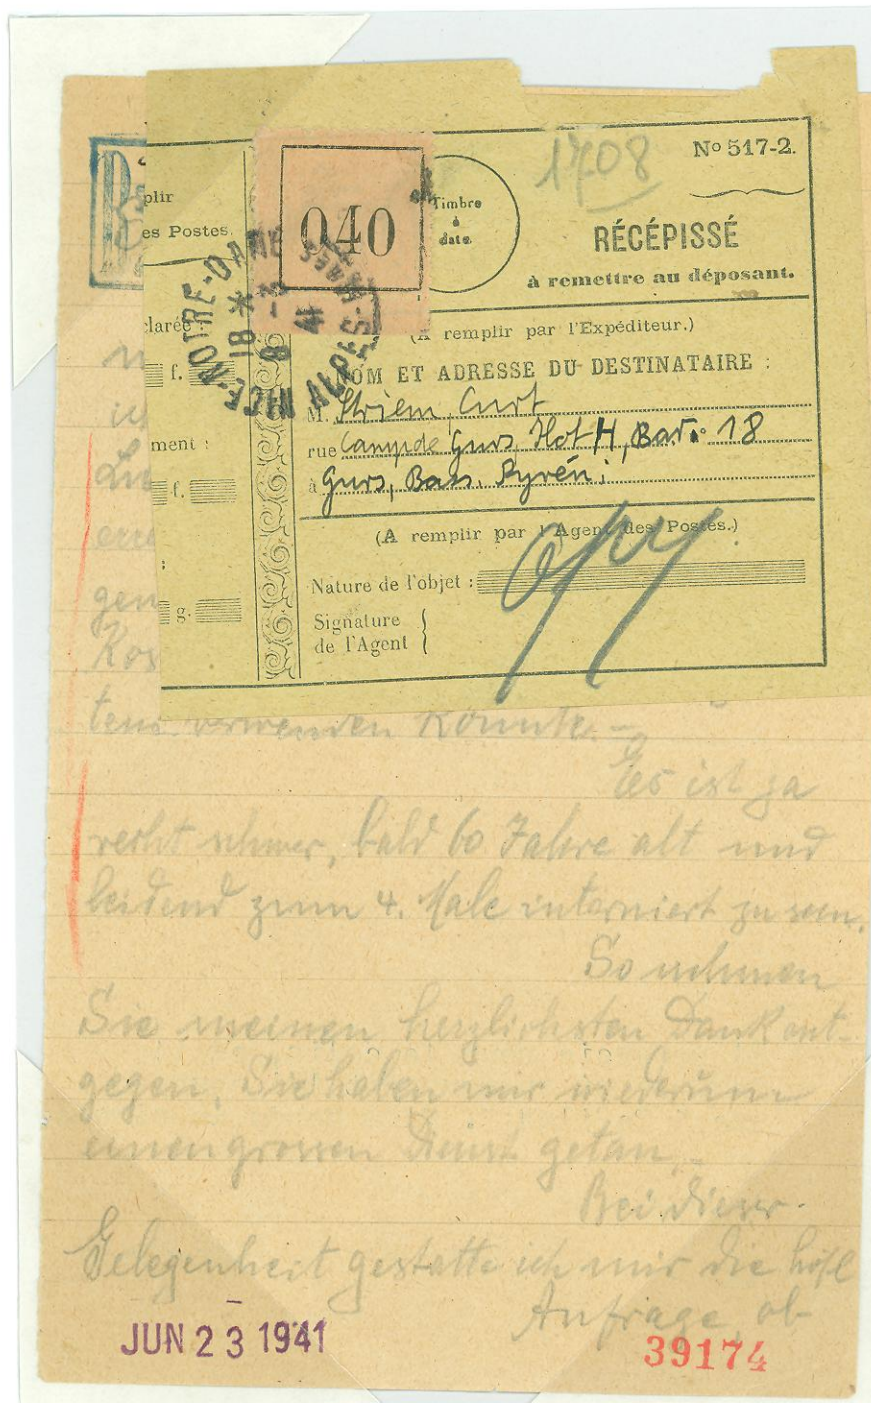 1708
No 517-2.
plir
es Postes.
040
Timbre
à
date.
RÉCÉPISSÉ
à remettre au déposant.
NICE-NOTRE-DAME
ALPES-MARES
18 *
8 -3
41
larée :
(A remplir par l'Expéditeur.)
f.
NOM ET ADRESSE DU DESTINATAIRE :
M. Striem, Curt
ment :
rue Camp de Gurs, Ilot H, Bar. 18
f.
à Gurs, Bass. Pyrén.
(A remplir par l'Agent des Postes.)
:
Nature de l'objet :
g.
Signature
de l'Agent
gen
tens verwenden könnte. -
Es ist ja
recht schwer, bald 60 Jahre alt und
leidend zum 4. Male interniert zu sein.
So nehmen
Sie meinen herzlichsten Dank ent-
gegen, Sie haben mir wiederum
einen grossen Dienst getan.
Bei dieser
Gelegenheit gestatte ich mir die höfl
Anfrage, ob
JUN 23 1941
39174